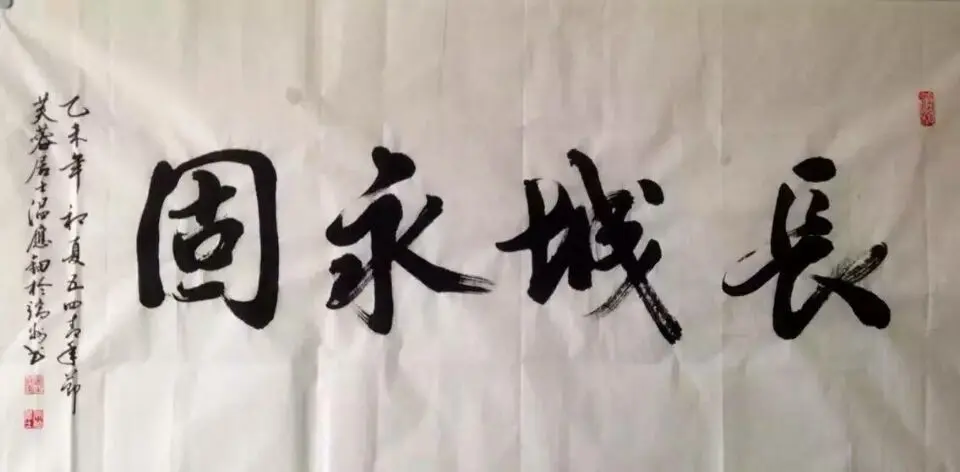 長城永固
乙未年初夏五四青年節
芙蓉居士温應初於端州书